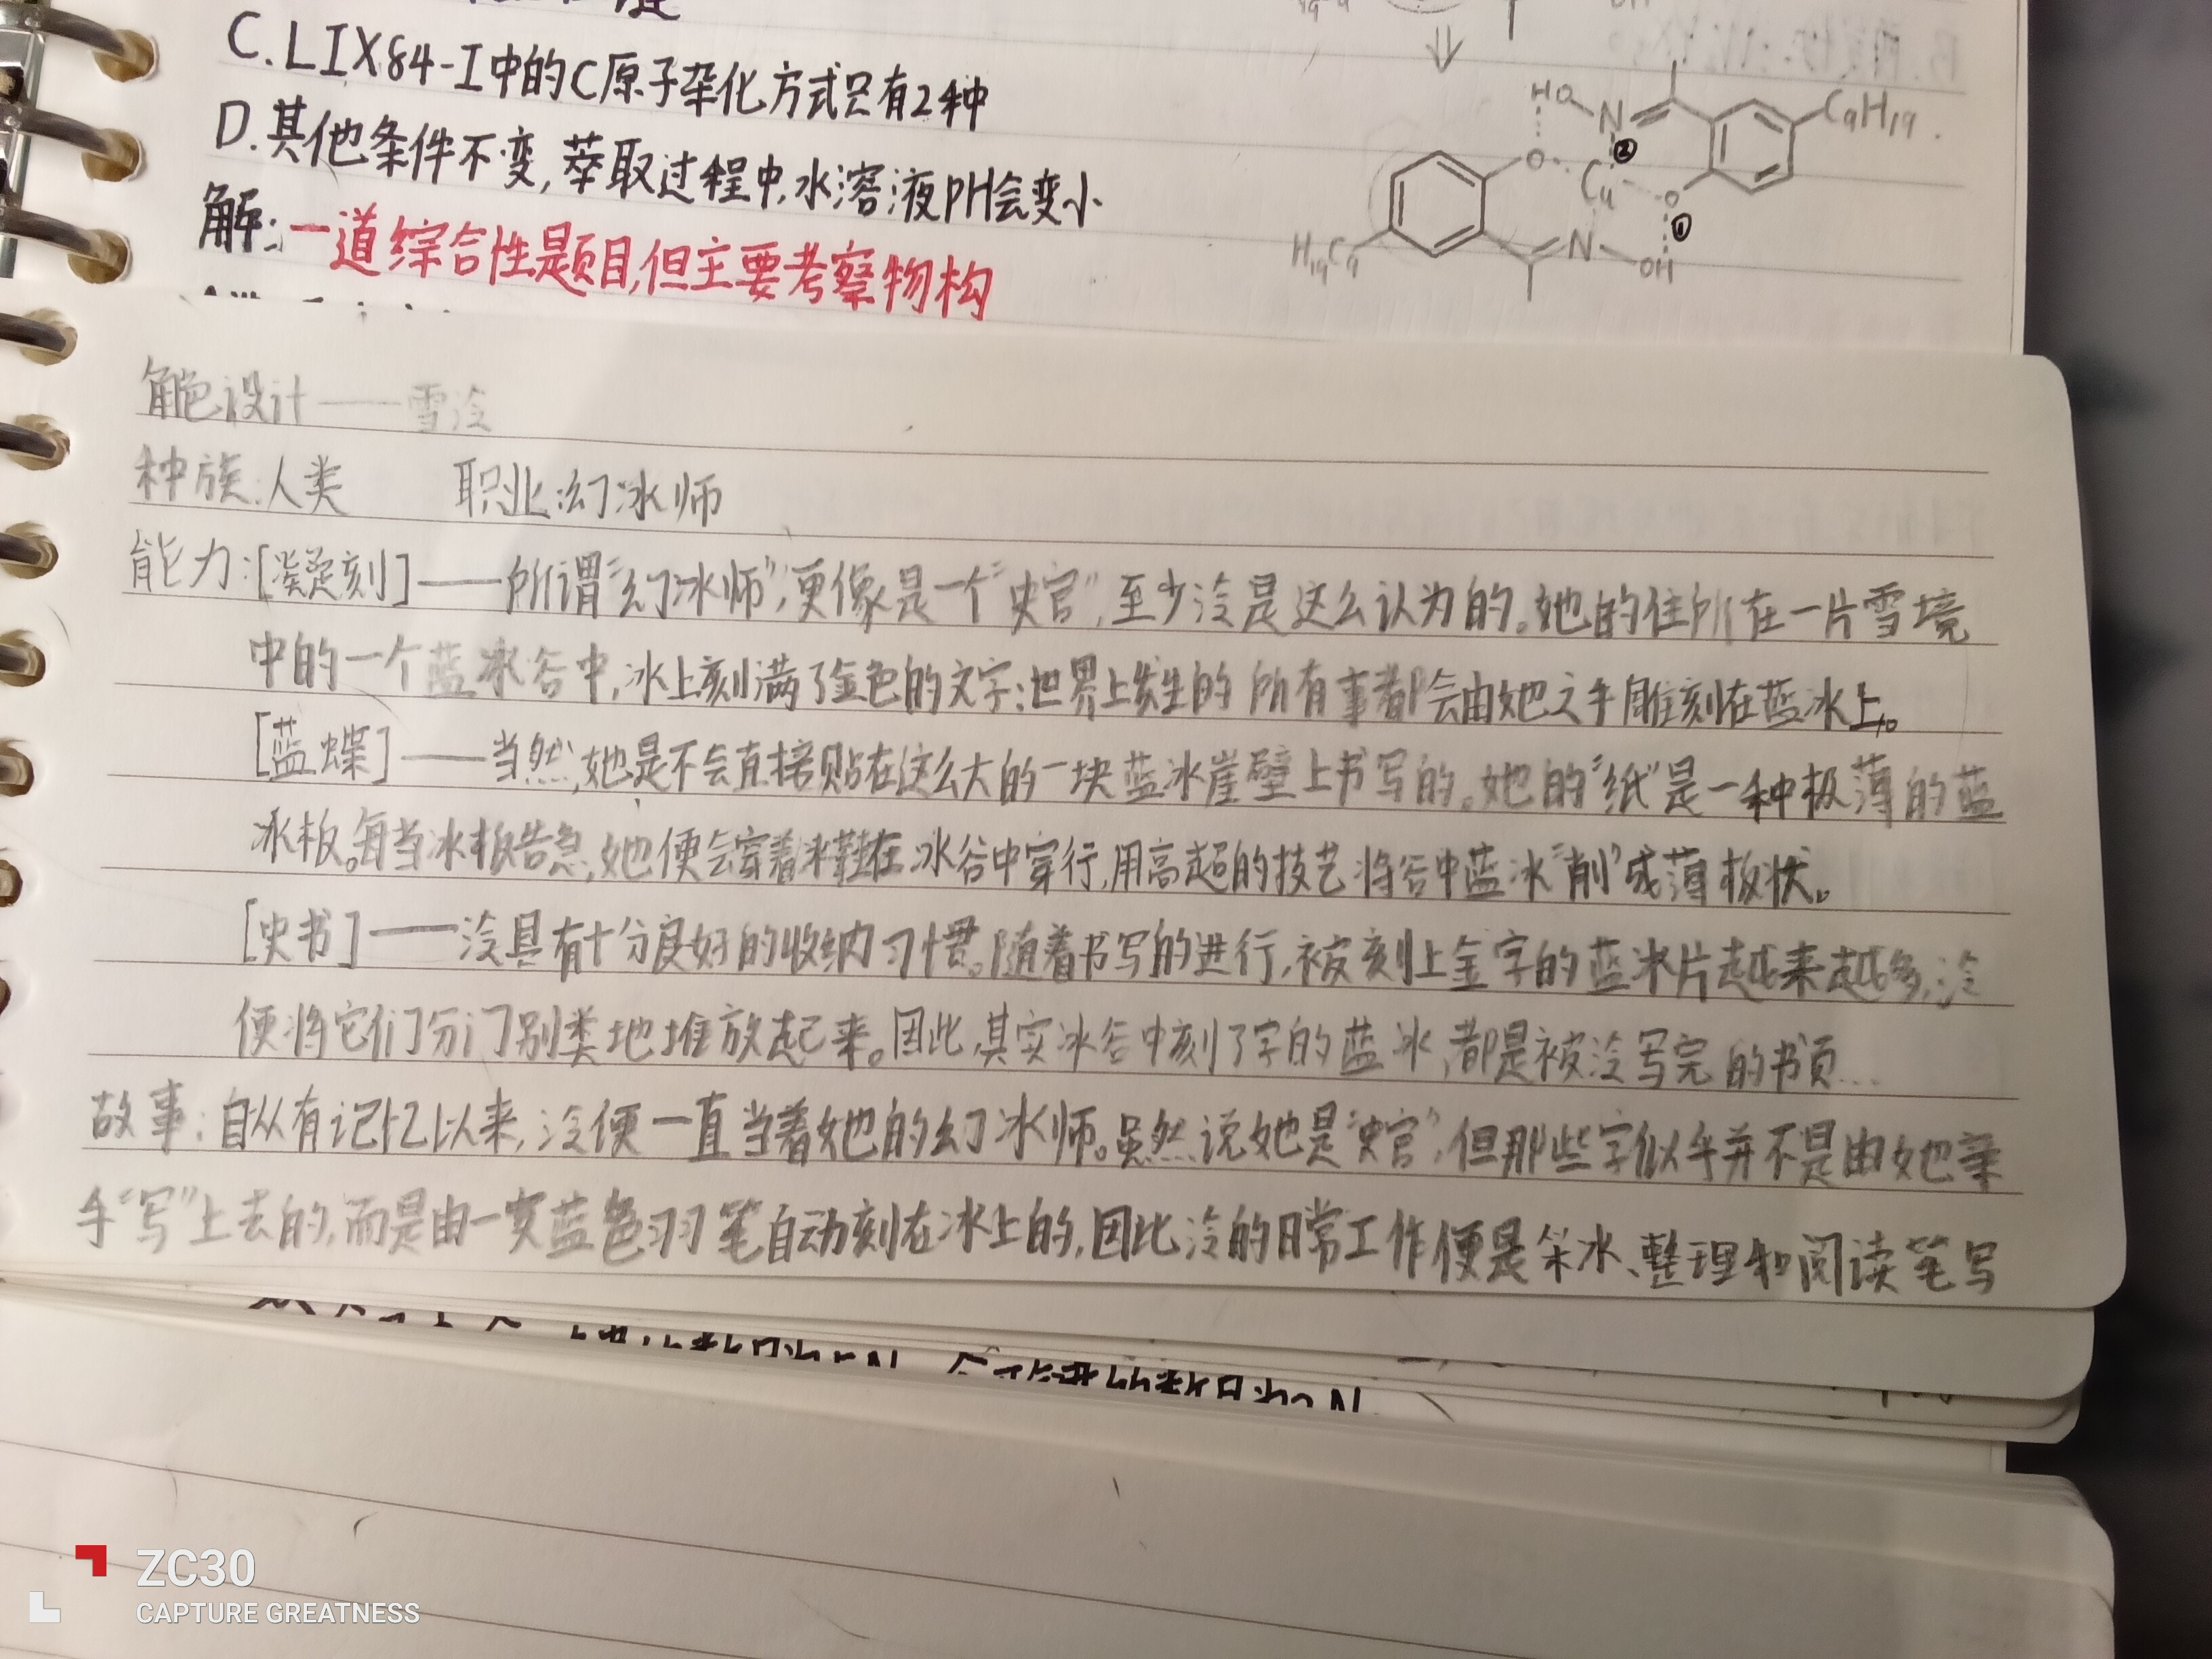 C.LIX84-I中的C原子杂化方式只有2种
D.其他条件不变,萃取过程中,水溶液PH会变小
解:一道综合性题目,但主要考察物构
HO N C9H19.
O Cu ② O ①
H19C9 N OH
角色设计——雪泠
种族:人类 职业:幻冰师
能力:[凝刻]——所谓"幻冰师",更像是一个"史官",至少泠是这么认为的。她的住所在一片雪境
中的一个蓝冰谷中,冰上刻满了金色的文字:世界上发生的所有事都会由她之手雕刻在蓝冰上。
[蓝蝶]——当然,她是不会直接贴在这么大的一块蓝冰崖壁上书写的。她的"纸"是一种极薄的蓝
冰板。每当冰板告急,她便会穿着冰鞋在冰谷中穿行,用高超的技艺将谷中蓝冰"削"成薄板状。
[史书]——泠具有十分良好的收纳习惯。随着书写的进行,被刻上金字的蓝冰片越来越多,泠
便将它们分门别类地堆放起来。因此,其实冰谷中刻了字的蓝冰,都是被泠写完的书页...
故事:自从有记忆以来,泠便一直当着她的幻冰师。虽然说她是"史官",但那些字似乎并不是由她亲
手"写"上去的,而是由一支蓝色羽笔自动刻在冰上的,因此泠的日常工作便是采冰、整理和阅读笔写
ZC30
CAPTURE GREATNESS